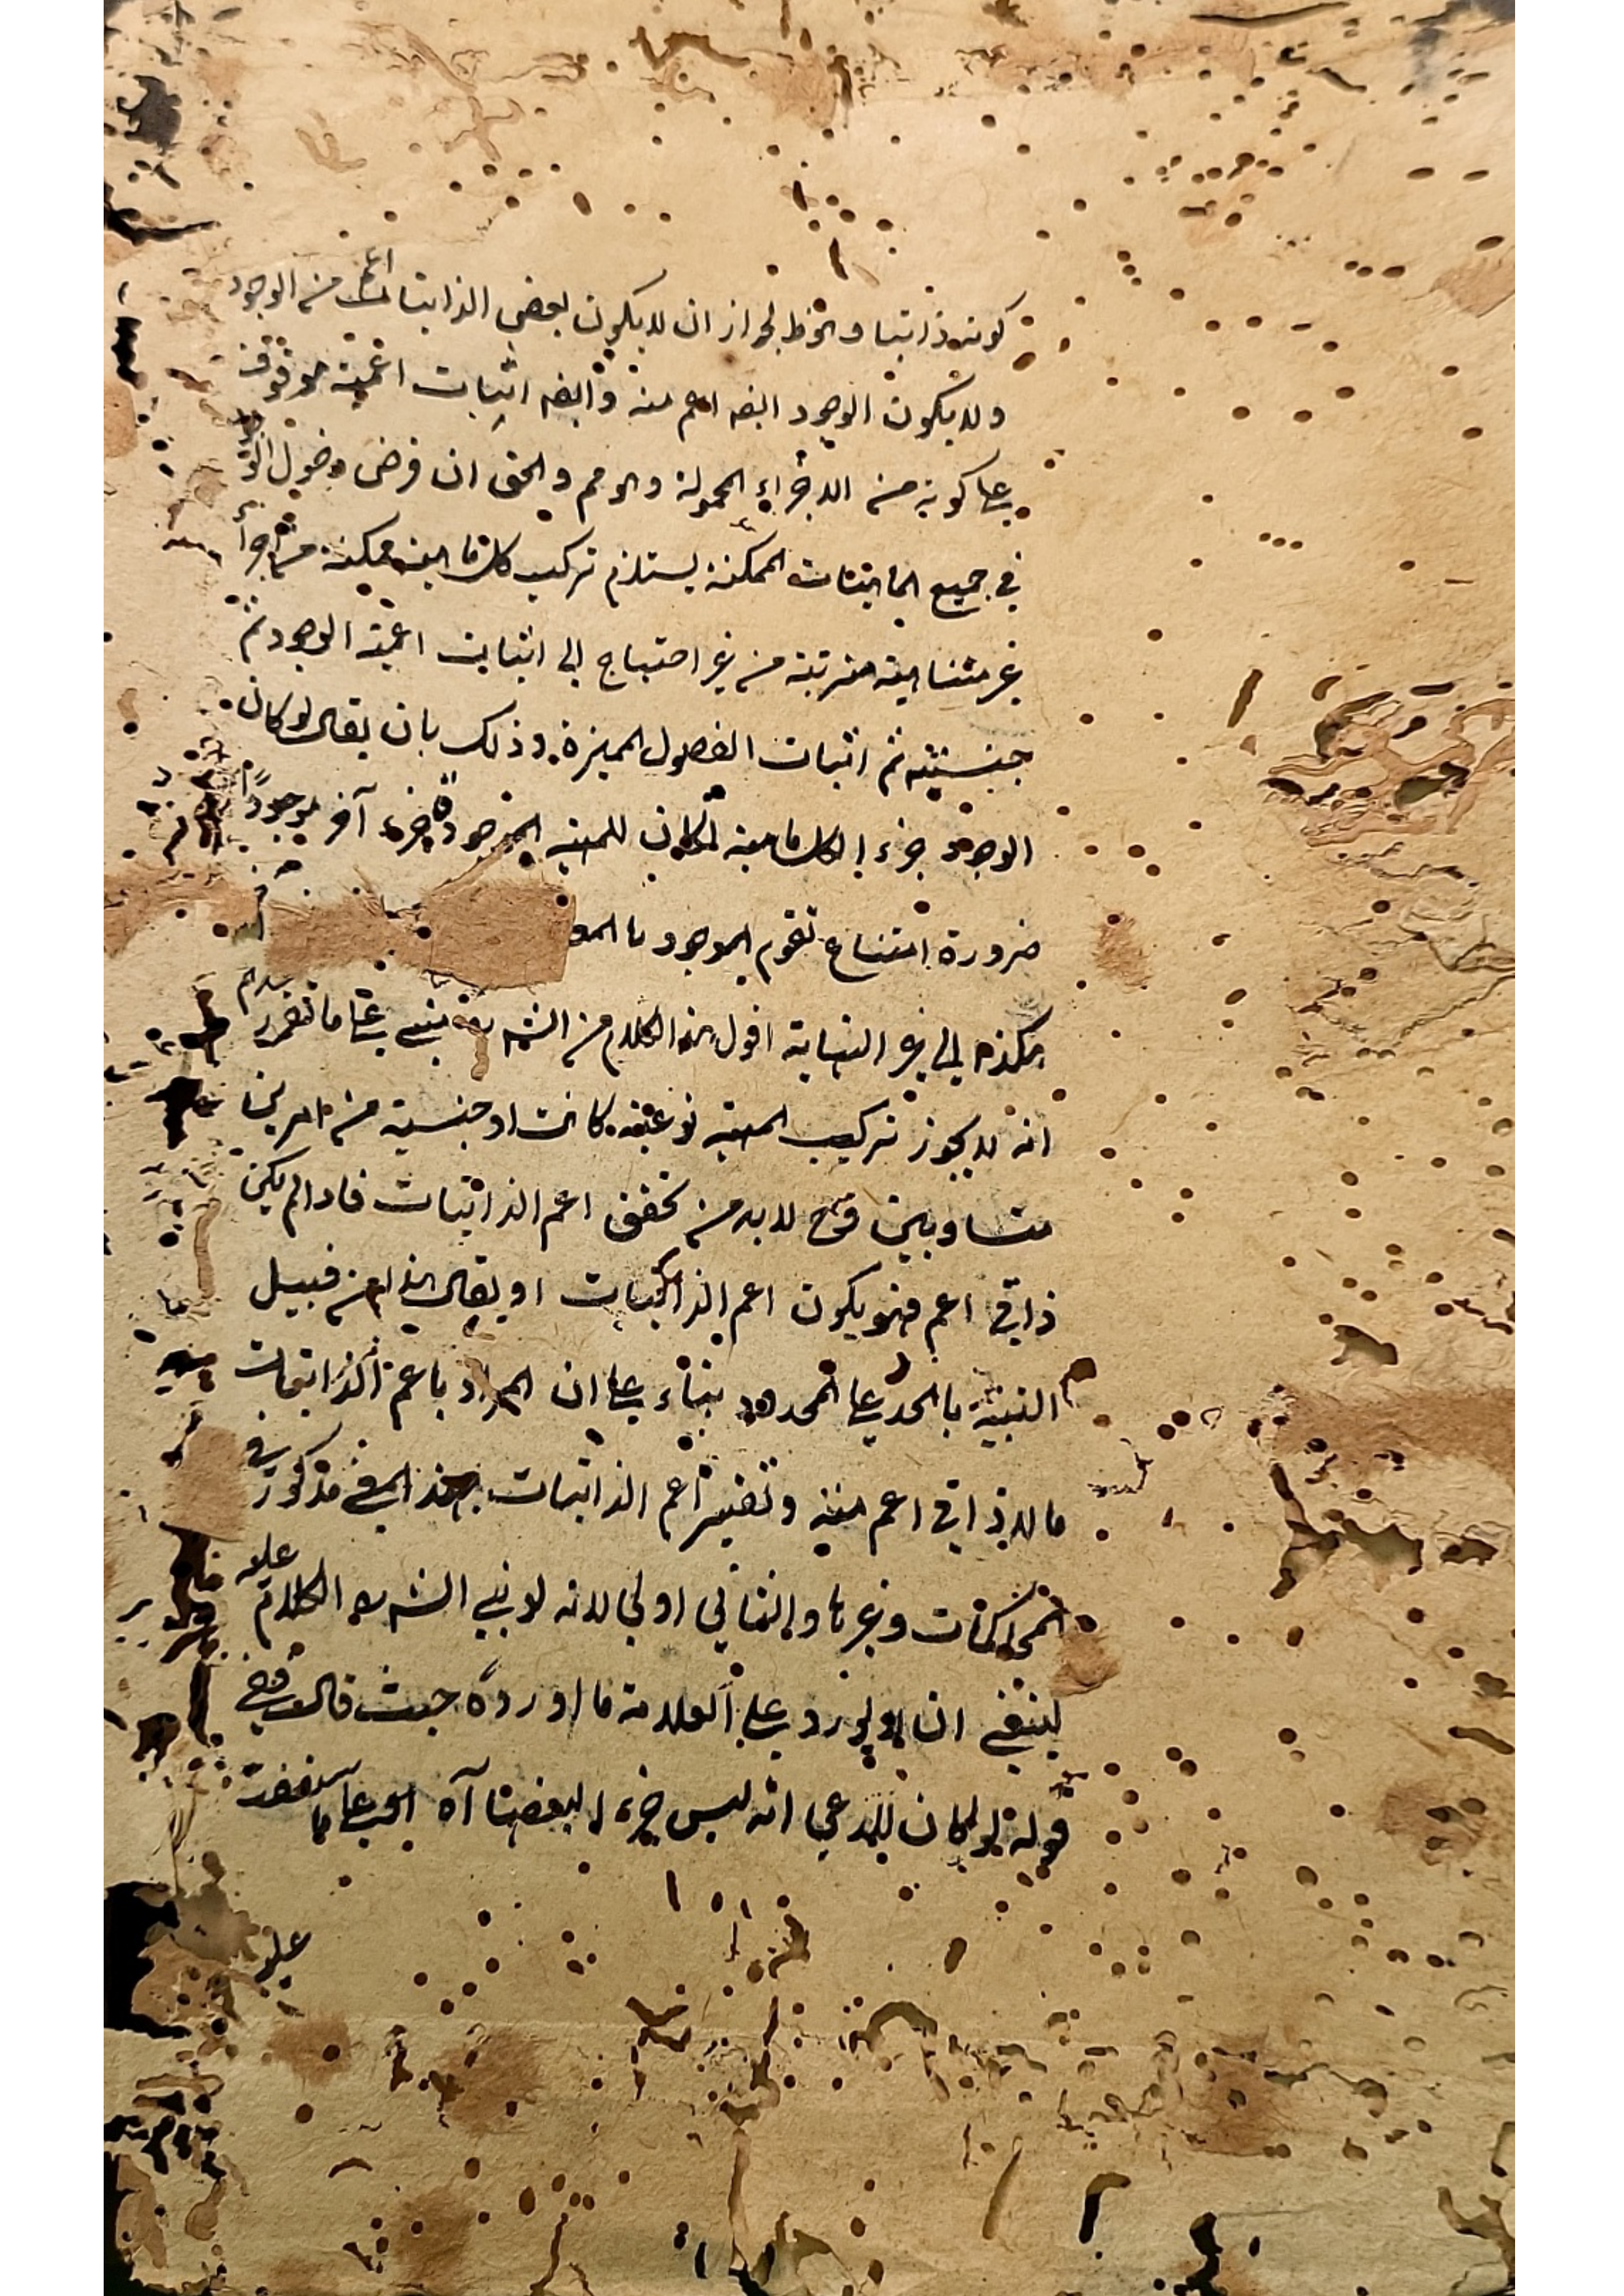 كونه ذاتيا والخط لجواز ان لا يكون بعض الذاتيات اعم من الوجود
ولا يكون الوجود ايضه اعم منه وايضه اثبات اعمية موقوف
على كونه من الاجزاء المحمولة والحق ان فرض دخول
في جميع الماهيات الممكنة يستلزم تركيب كل ماهية ممكنة من اجزأ
غير متناهية مترتبة من غير احتياج الى اثبات اعمية الوجود ثم
جنسيته ثم اثبات الفصول المميزة وذلك بان يقال لو كان
الوجود جزءا لكل ماهية لكان للمهية الموجودة جزء آخر موجودًا
ضرورة امتناع تقوم الموجود بالمو
هكذا الى غير النهاية اقول هذا الكلام من الش مبنى على ما تقرر
انه لا يجوز تركيب المهية نوعية كانت او جنسية من امرين
متساويين فح لا بد من تحقق اعم الذاتيات فاذا لم يكن
ذاتي اعم فهو يكون اعم الذاتيات او يقال هذا من قبيل
التنبيه بالحد على المحدود بناء على ان المراد باعم الذاتيات
ما لا ذاتي اعم منه وتفسير اعم الذاتيات بهذا المعنى مذكور في
المحاكمات وغيرها والثاني اولى لانه لو بنى الش الكلام عليه
ينبغي ان لا يورد على العلامة ما اورده حيث قال
قوله لو كان المدعى انه ليس جزءا لبعضها آه
عليه